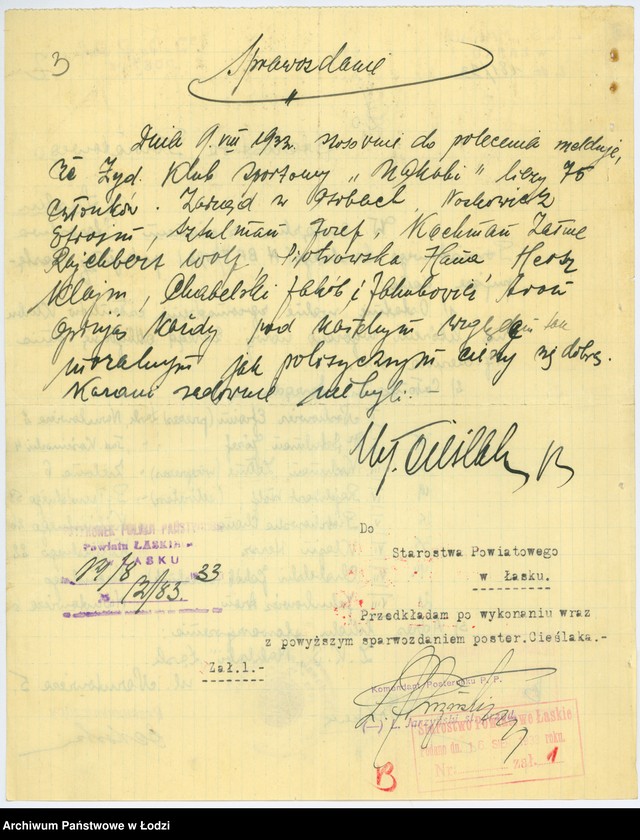 3
Sprawozdanie
Dnia 9. VIII 1933. stosownie do polecenia melduję,
że Żyd. Klub Sportowy „Makabi" liczy 75
członków. Zarząd w osobach, Noskowicz
Efroim, Sztulman Josef Kochman Zalme
Rajchbert Wolf, Piotrowska Hana Hersz
Klajn, Chabelski Jakób i Jakubowicz Aron
każdy pod każdym względem tak
moralnym jak politycznym cieszy się dobrą.
Karani sądownie nie byli.-
Cieślak
POSTERUNEK POLICJI PAŃSTWOWEJ
Powiatu ŁASKIEGO
ŁASKU
19/8 33
Do
Starostwa Powiatowego
w Łasku.
Przedkładam po wykonaniu wraz
z powyższym sparwozdaniem poster.Cieślaka.-
Zał.1.-
Komendant Posterunku P.P.
Starostwo Powiatowe Łaskie
roku.
Nr. zał. 1
B
Archiwum Państwowe w Łodzi